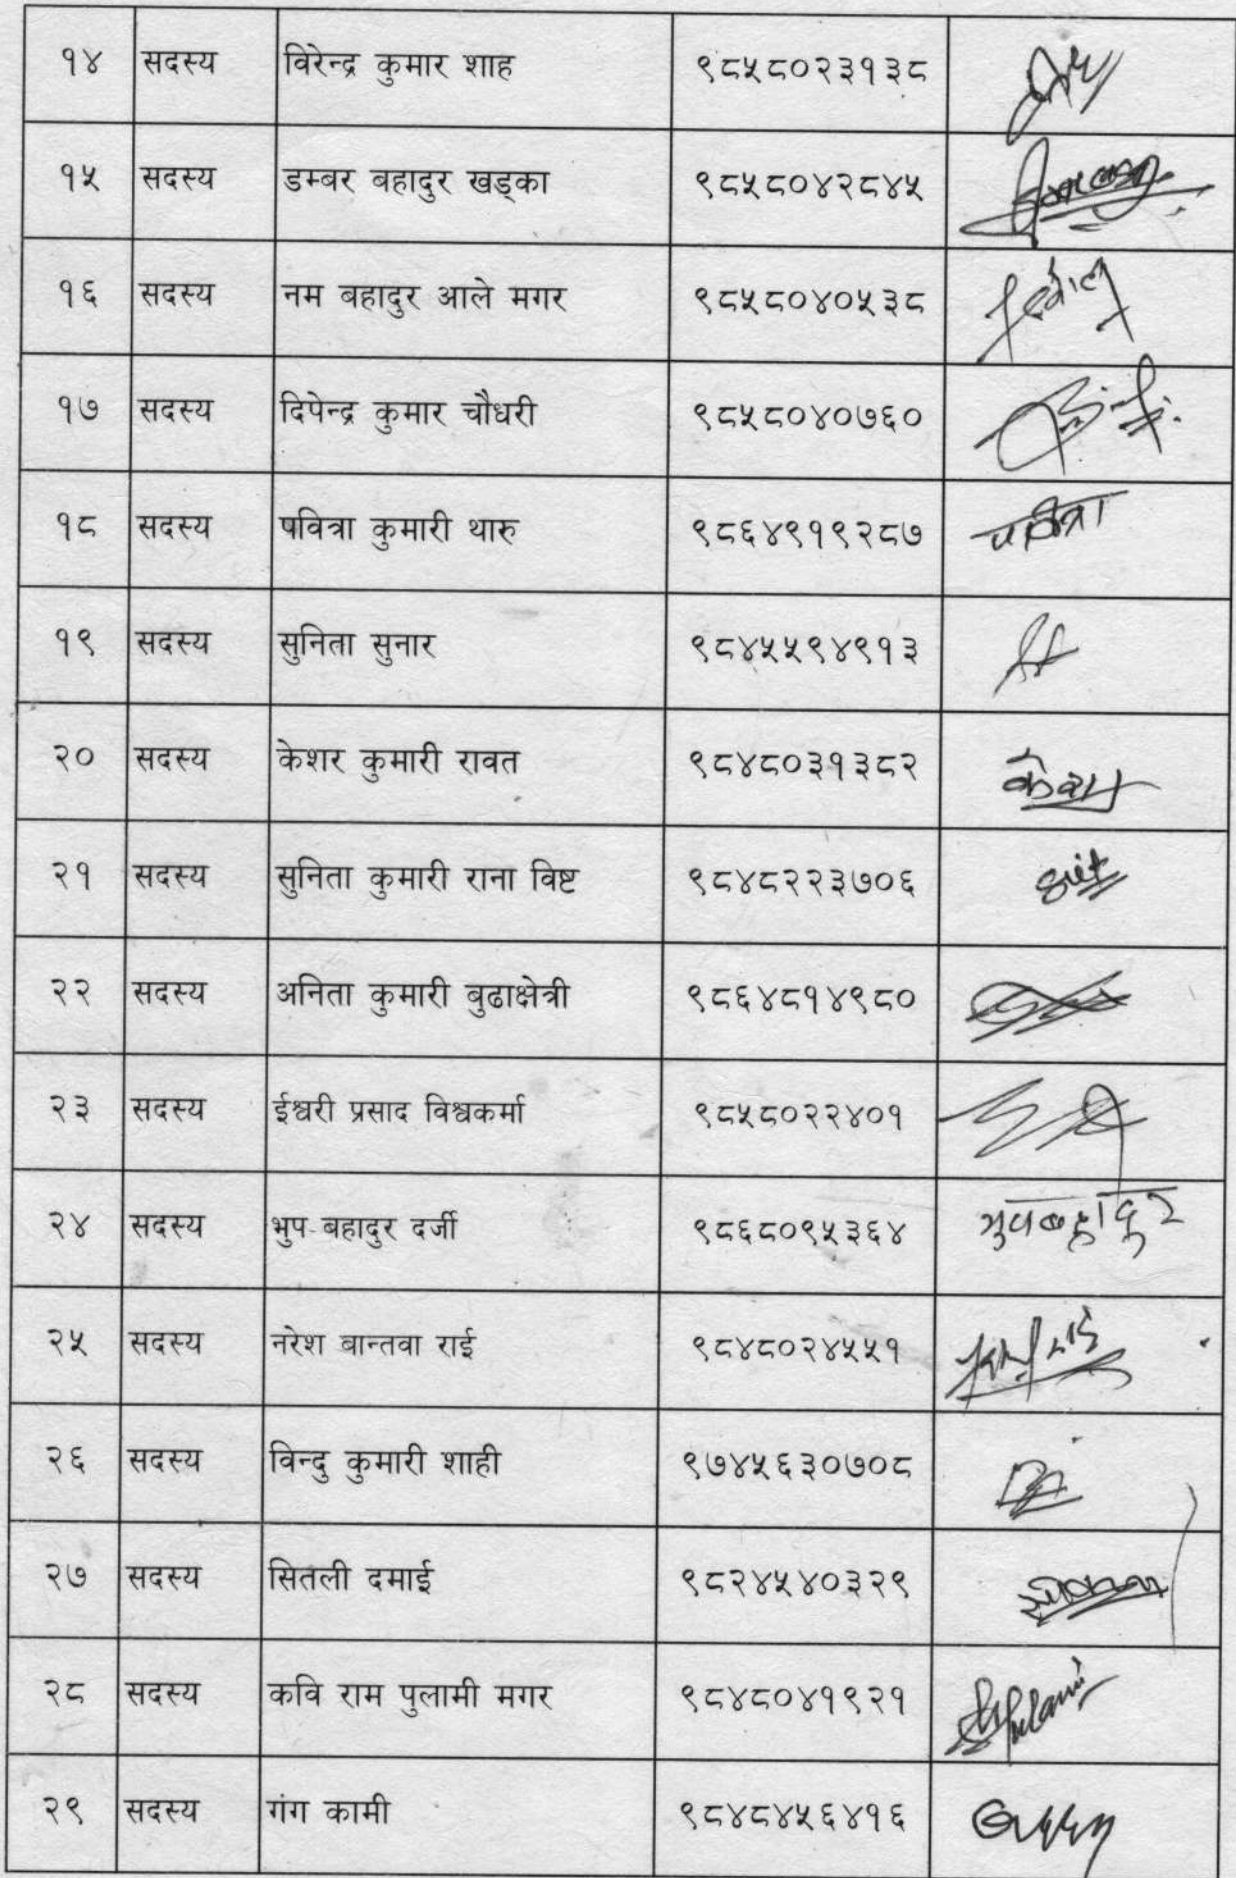 १४ सदस्य विरेन्द्र कुमार शाह ९८५८०२३१३८
१५ सदस्य डम्बर बहादुर खड्का ९८५८०४२८४५
१६ सदस्य नम बहादुर आले मगर ९८५८०४०५३८
१७ सदस्य दिपेन्द्र कुमार चौधरी ९८५८०४०७६०
१८ सदस्य पवित्रा कुमारी थारु ९८६४९१९२८७ पवित्रा
१९ सदस्य सुनिता सुनार ९८४५५९४९१३
२० सदस्य केशर कुमारी रावत ९८४८०३१३८२
२१ सदस्य सुनिता कुमारी राना विष्ट ९८४८२२३७०६
२२ सदस्य अनिता कुमारी बुढाक्षेत्री ९८६४८१४९८०
२३ सदस्य ईश्वरी प्रसाद विश्वकर्मा ९८५८०२२४०१
२४ सदस्य भुप बहादुर दर्जी ९८६८०९५३६४ भुपबहादुर
२५ सदस्य नरेश बान्तवा राई ९८४८०२४५५१
२६ सदस्य विन्दु कुमारी शाही ९७४५६३०७०८
२७ सदस्य सितली दमाई ९८२४५४०३२९
२८ सदस्य कवि राम पुलामी मगर ९८४८०४१९२१
२९ सदस्य गंग कामी ९८४८४५६४१६